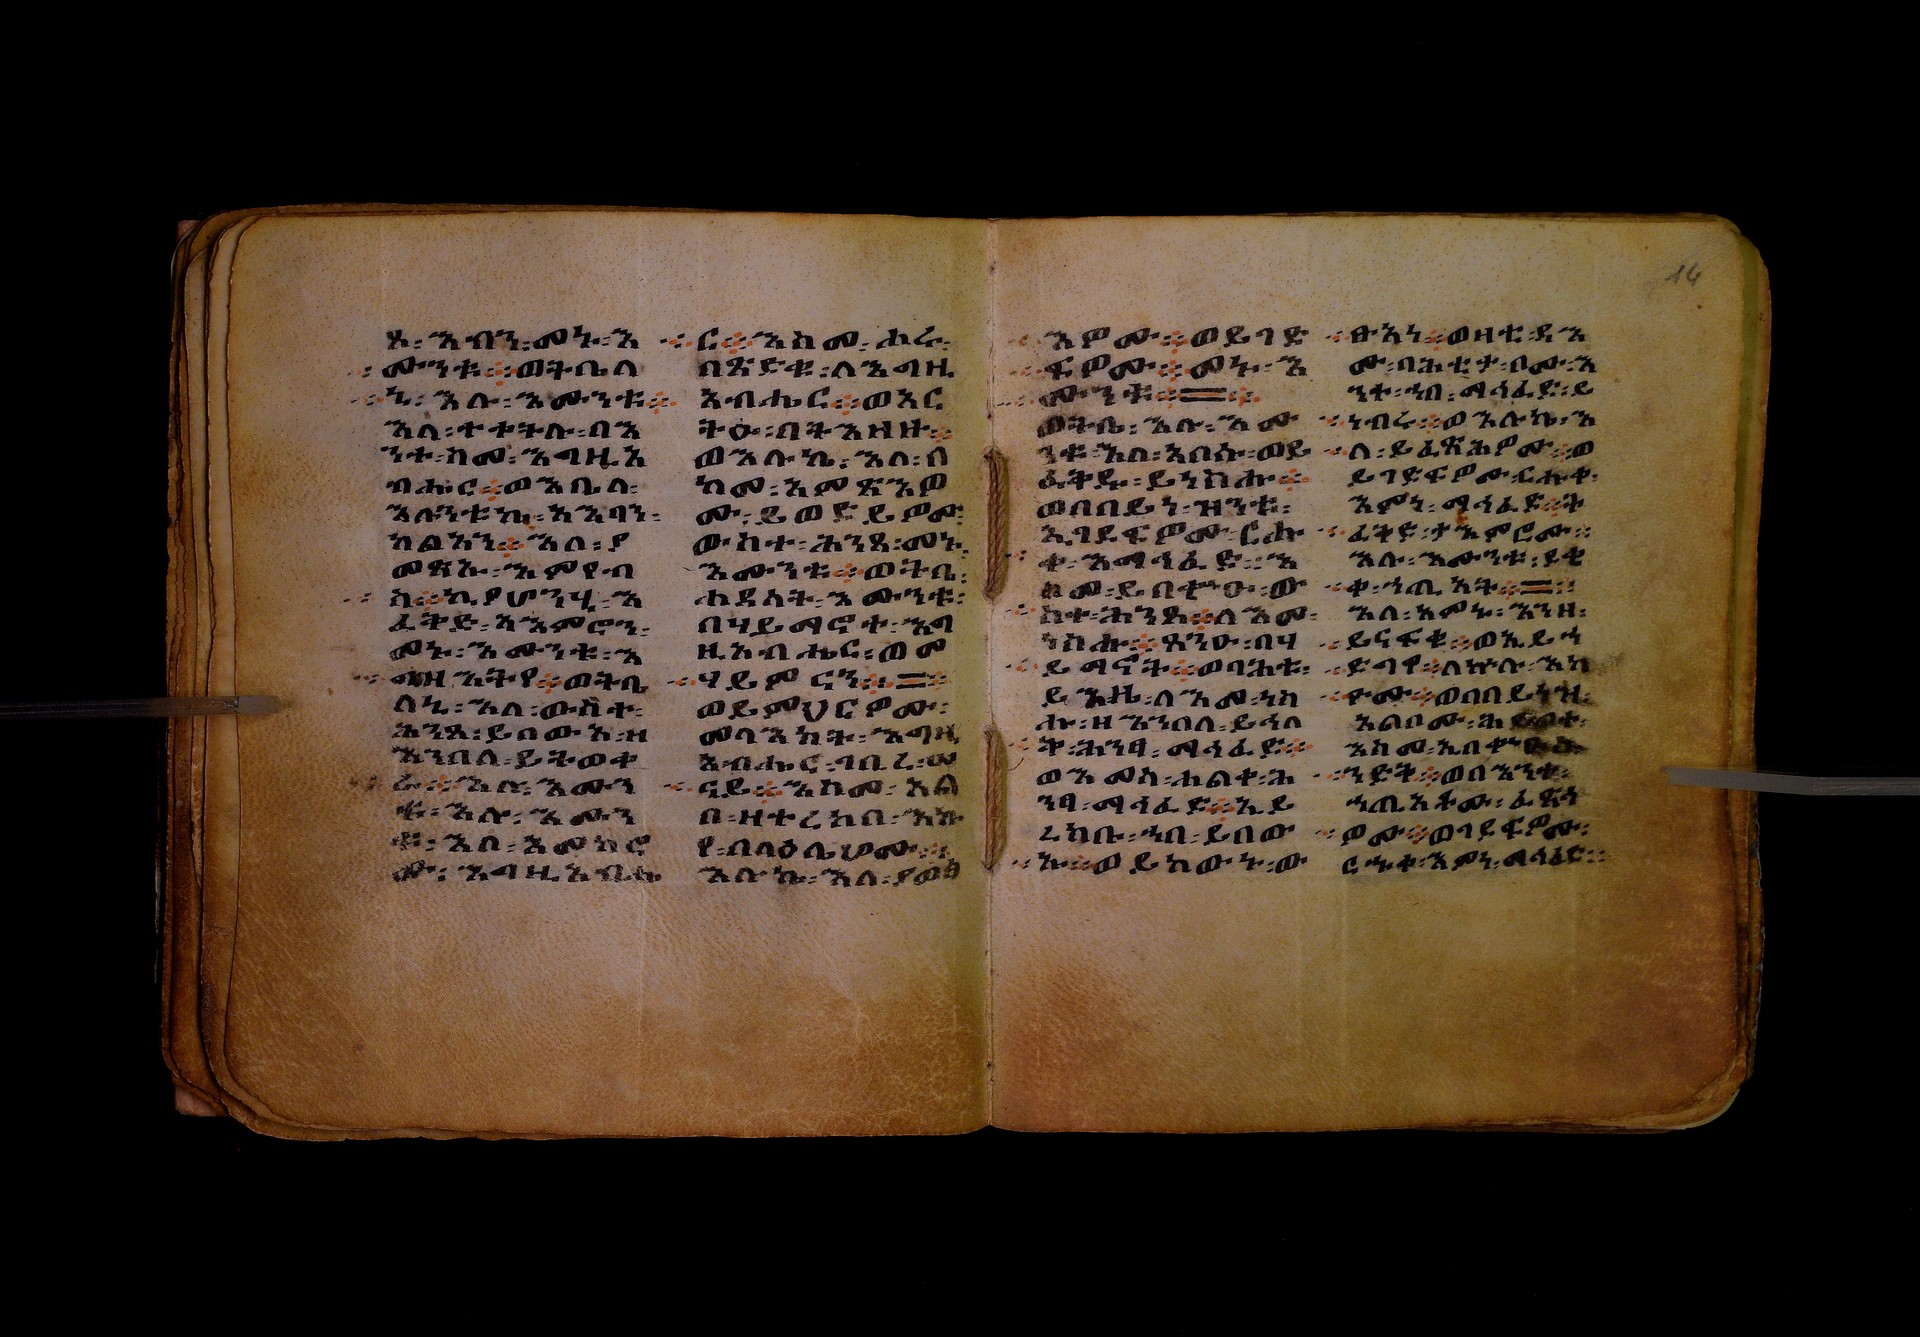 ጹ፡ እብን፡ መኑ፡ እ
ሙንቱ፨ወትቤለ
ኒ፡ እሉ፡ እሙንቱ፨
እለ፡ ተቀትሉ፡ በእ
ንተ፡ ስመ፡ እግዚአ
ብሔር፨ወእቤላ፡
እሉንቱኬ፡ አእባን፡
ካልኣን፨እለ፡ ያ
መጽኡ፡ እምየብ
ስ፨ኪያሆንሂ፡ እ
ፈትድ፡ አእምርን፡
መኑ፡ እሙንቱ፡ እ
ግዝእትየ፨ወትቤ
ለኒ፡ እለ፡ ውስተ፡
ሕንጻ፡ ይበውኡ፡ ዘ
እንበለ፡ ይትወቀ
ሩ፨እሉ፡ እሙን
ቱ፡ እሉ፡ እሙን
ቱ፡ እለ፡ አመከሮ
ሙ፡ እግዚአብሔ
ር፨እስመ፡ ሖሩ፡
በጽድቁ፡ ለእግዚ
አብሔር፨ወአር
ትዑ፡ በትእዛዙ፨
ወእሉኬ፡ እለ፡ በ
ከመ፡ አምጽእዎ
ሙ፡ ይወድይዎሙ፡
ውስተ፡ ሕንጻ፡ መኑ፡
እሙንቱ፨ወትቤ፡
ሐደስት፡ እሙንቱ፡
በሃይማኖተ፡ እግ
ዚአብሔር፡ ወመ
ሃይምናን፨=
ወይምህርዎሙ፡
መላእክት፡ እግዚ
አብሔር፡ ገቢረ፡ ሠ
ናይ፨እስመ፡ አል
ቦ፡ ዘተረክበ፡ እከ
የ፡ በላዕሌሆሙ፨
እሉኬ፡ እለ፡ ያወፅ
እዎሙ፨ወይገድ
ፍዎሙ፨መኑ፡ እ
ሙንቱ፨=
ወትቤ፡ እሉ፡ እሙ
ንቱ፡ እለ፡ አበሱ፡ ወይ
ፈትዱ፡ ይነስሑ፨
ወበበይነ፡ ዝንቱ፡
ኢገደፍዎሙ፡ ርሑ
ቀ፡ እማኅፈድ፡ እ
ስመ፡ ይበቍዑ፡ ው
ስተ፡ ሕንጻ፨ለእመ፡
ነስሑ፨ጸንዑ፡ በሃ
ይማኖት፨ወባሕቱ፡
ይእዜ፡ ለእመ፡ ነስ
ሑ፡ ዘእንበለ፡ ይኅለ
ቅ፡ ሕንፃ፡ ማኅፈድ፨
ወእመሰ፡ ሐልቀ፡ ሕ
ንፃ፡ ማኅፈድ፨ኢይ
ረክቡ፡ ኀበ፡ ይበው
ኡ፨ወይከውኑ፡ ው
ፁአነ፨ወዛቲ፡ ዳእ
ሙ፡ ባሕቲታ፡ ቦሙ፡ እ
ንተ፡ ኀበ፡ ማኅፈድ፡ ይ
ነብሩ፨ወእሉኬ፡ እ
ለ፡ ይፈጽሕዎሙ፡ ወ
ይገድፍዎሙ፡ ርሑቀ፡
እምነ፡ ማኅፈድ፨ት
ፈትድ፡ ታእምሮሙ፡
እሉ፡ እሙንቱ፡ ደቂ
ቀ፡ ኀጢአት፨=
እለ፡ አምኑ፡ እንዘ፡
ይናፍቁ፨ወኢይኀ
ድግዎ፨ለኵሉ፡ እከ
ዮሙ፨ወበበይነዝ፡
አልቦሙ፡ ሕይወት፡
እስመ፡ ኢበቍዑ፡
ንፃት፨ወበእንተ፡
ኀጢአቶሙ፡ ፈጽሕ
ዎሙ፨ወገደፍዎሙ፡
ርኁቀ፡ እምነ፡ ማኅፈድ፨
14